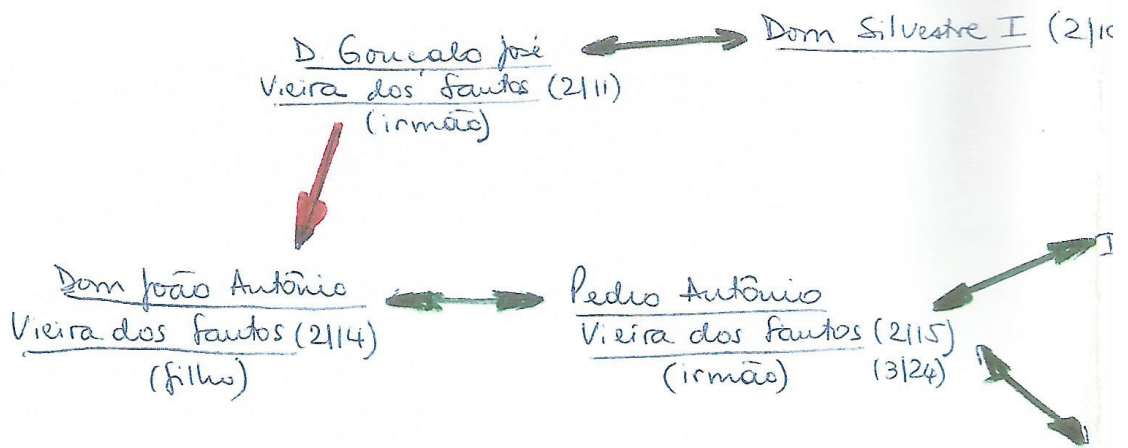 D. Gonçalo José
Vieira dos Santos (2/11)
(irmão)
Dom Silvestre I (2/1
Dom João António
Vieira dos Santos (2/14)
(filho)
Pedro António
Vieira dos Santos (2/15)
(irmão) (3/24)
I